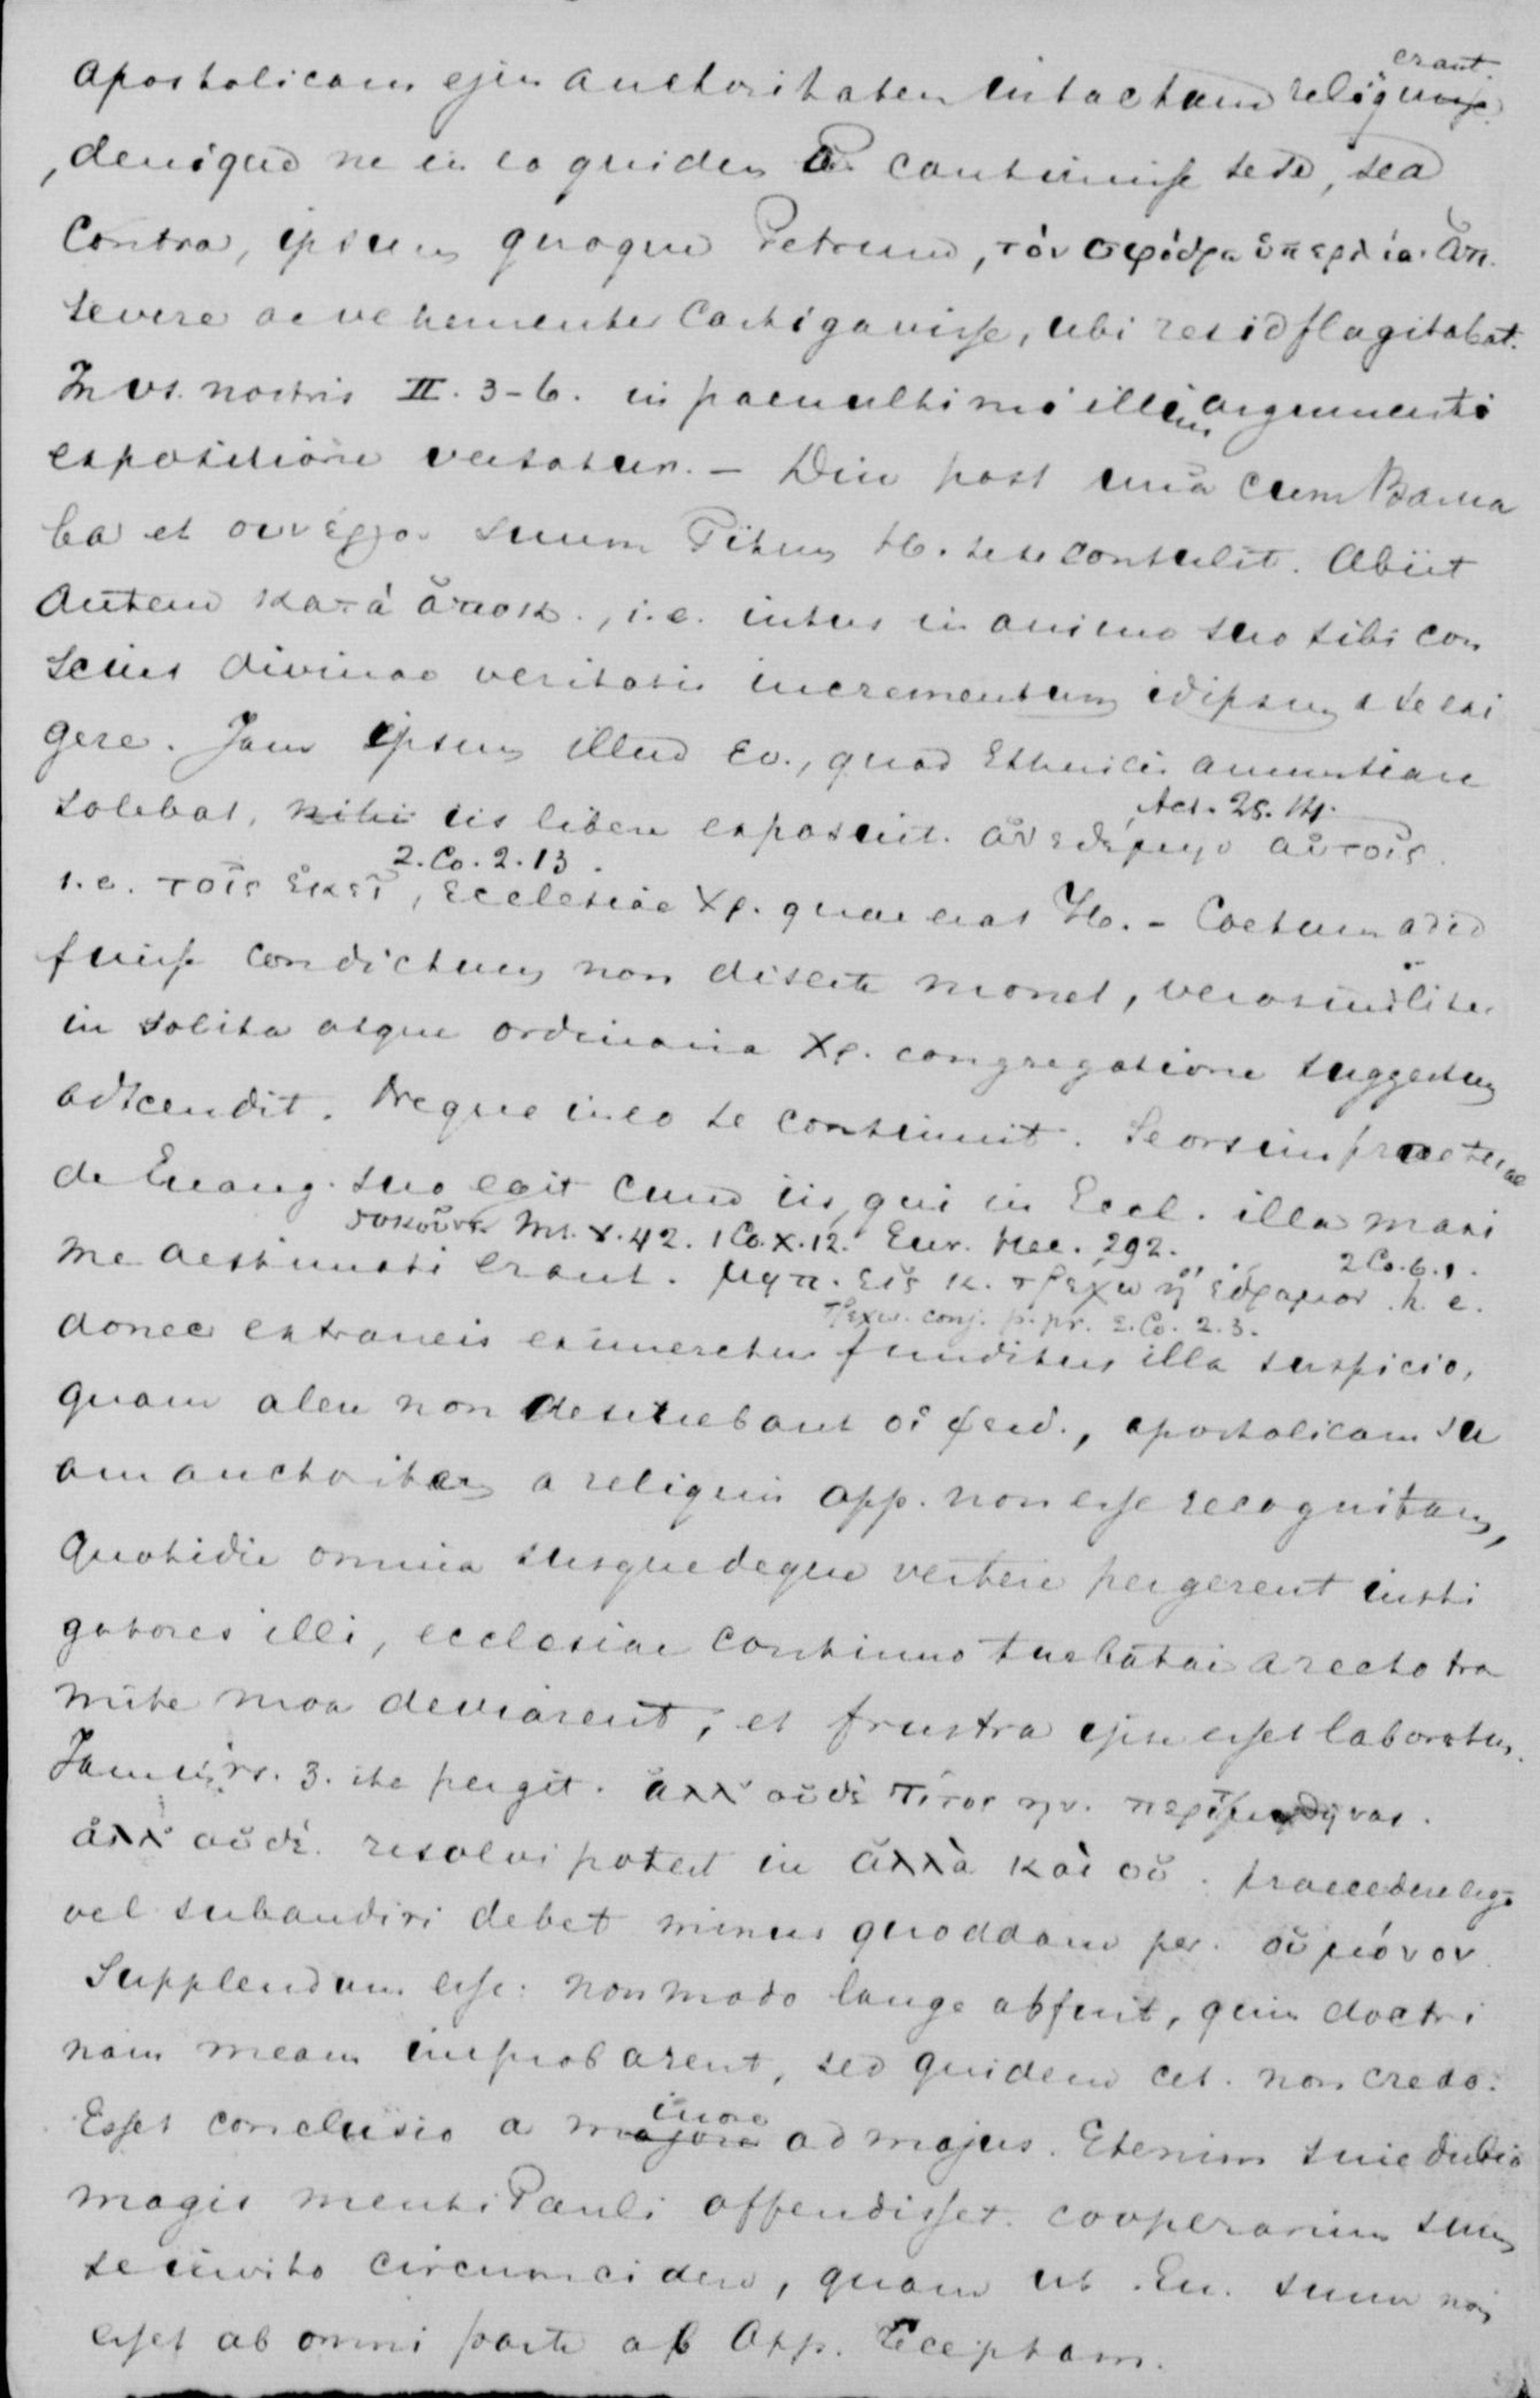 apostolicam ejus auctoritatem intactam reliquerant
, denique ne in eo quidem P. continuisse sese, sed
contra, ipsum quoque Petrum, τὸν σφόδρα ὑπερλία. ἀπ.
severe ac vehementer castigavisse, ubi res id flagitabat.
In vs. nostris II. 3-6. in paenultimi illius argumenti
expositione versatur. - Diu post una cum Barna
ba et συνεργον suum Titum H. sese contulit. Abiit
autem κατὰ ἀποκ., i.e. intus in animo suo sibi con
scius divinae veritatis incrementum id ipsum a se exi
gere. Jam ipsum illud Ev., quod Ethnicis annuntiare
solebat, iis libere exposuit. ἀνεθέμην αὐτοῖς.
Act. 25. 14.
i.e. τοῖς ἐκεῖ, Ecclesiae Χρ. quae erat H. - Coetum ad id
2. Co. 2. 13.
fuisse condictum non diserte monet, verosimiliter
in solita atque ordinaria Χρ. congregatione suggestum
adscendit. Neque in eo se continuit. Seorsim praeterea
de Euang. suo egit cum iis, qui in Eccl. illa maxi
δοκοῦντ. Mr. X. 42. 1 Co. X. 12. Eur. Hec. 292.
me aestimati erant. μηπ. εἰς κ. τρεχω ἢ ἔδραμον. h. e.
2 Co. 6. 1.
τρεχω. conj. p. pr. 2. Co. 2. 3.
donec extraneis eximeretur funditus illa suspicio,
quam alere non desinebant οἱ ψευδ., apostolicam su
am auctoritatem a reliquis app. non esse recognitam,
quotidie omnia susquedeque vertere pergerent insti
gatores illi, ecclesiae continuo turbatae a recto tra
mite mox deviarent, et frustra ejus esset laboratum.
Jam in vs. 3. ita pergit. ἀλλ' οὐδὲ Τίτος ην. περιτμηθῆναι.
ἀλλ' οὐδὲ. resolvi potest in ἀλλὰ καὶ οὐ. praecedere igr
vel subaudiri debet minus quoddam per. οὐ μόνον.
Supplendum esse: non modo longe abfuit, quin doctri
nam meam improbarent, sed quidem cet. non credo.
Esset conclusio a minore ad majus. Etenim sine dubio
magis menti Pauli offendisset. cooperarium suum
se invito circumcidere, quam ut Eu. suum non
esset ab omni parte ab App. receptam.